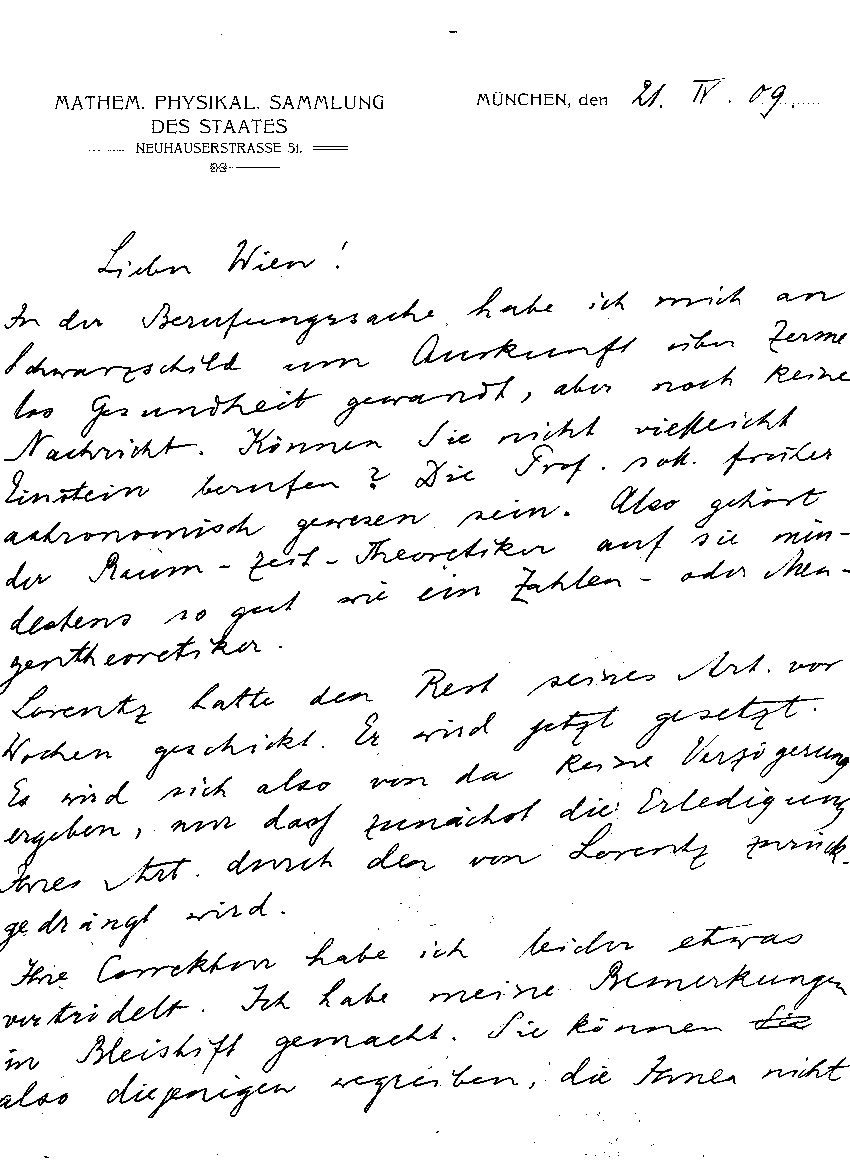 MATHEM. PHYSIKAL. SAMMLUNG
DES STAATES
NEUHAUSERSTRASSE 51.
MÜNCHEN, den 21. IV. 09.
Lieber Wien!
In der Berufungssache habe ich mich an
Schwarzschild um Auskunft über Zerme
los Gesundheit gewandt, aber noch keine
Nachricht. Können Sie nicht vielleicht
Einstein berufen? Die Prof. soll früher
astronomisch gewesen sein. Also gehört
der Raum-Zeit-Theoretiker auf sie min-
destens so gut wie ein Zahlen- oder Men-
gentheoretiker.
Lorentz hatte den Rest seines Art. vor
Wochen geschickt. Er wird jetzt gesetzt.
Es wird sich also von da keine Verzögerung
ergeben, nur dass zunächst die Erledigung
Ihres Art. durch den von Lorentz zurück-
gedrängt wird.
Ihre Correktur habe ich leider etwas
vertrödelt. Ich habe meine Bemerkungen
in Bleistift gemacht. Sie können Sie
also diejenigen wegreiben, die Ihnen nicht